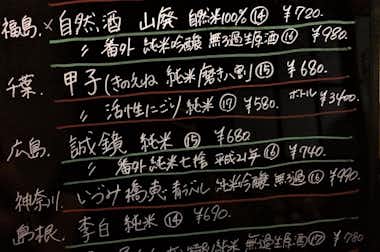 福島.× 自然酒 山廃 自然米100% ⑭ ¥720.
〃 番外 純米吟醸 無ろ過生原酒 ⑯ ¥980.
千葉. 甲子(きのえね 純米/磨き八割) ⑮ ¥680
〃 活性にごり 純米 ⑰ ¥580. ボトル ¥3400.
広島. 誠鏡 純米 ⑮ ¥680
〃 番外 純米七拾 平成21年 ⑯ ¥740.
神奈川. いづみ橋 恵 青ラベル 純米吟醸 無ろ過 ⑯ ¥990.
島根. 李白 純米 ⑭ ¥690.
純米 無ろ過生原酒 ¥780